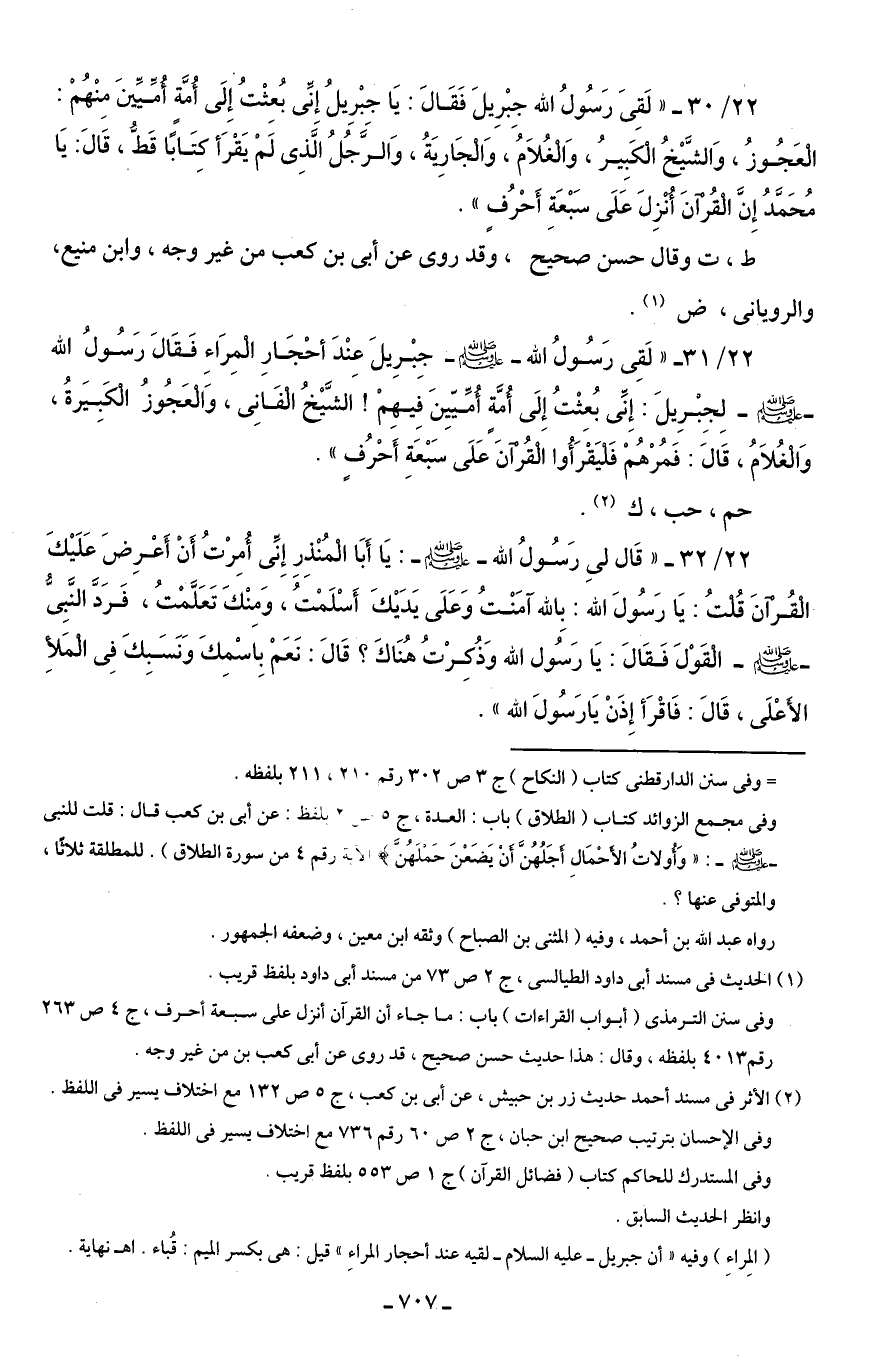 ٢٢/ ٣٠ ـ « لَقِىَ رَسُولُ الله جِبْرِيلَ فَقَالَ : يَا جِبْرِيلُ إِنِّى بُعِثْتُ إِلَى أُمَّةٍ أُمِّيِّينَ مِنْهُمْ :
الْعَجُوزُ ، وَالشَّيْخُ الْكَبِيرُ ، وَالْغُلاَمُ ، وَالْجَارِيَةُ ، وَالرَّجُلُ الَّذِى لَمْ يَقْرَأ كِتَابًا قَطُّ ، قَالَ: يَا
مُحَمَّدُ إِنَّ الْقُرْآنَ أُنْزِلَ عَلَى سَبْعَةِ أَحْرُفٍ » .
ط ، ت وقال حسن صحيح ، وقد روى عن أبى بن كعب من غير وجه ، وابن منيع،
والرويانى ، ض (١) .
٢٢/ ٣١ـ « لَقِى رَسُولُ الله ـ ﷺ ـ جِبْرِيلَ عِنْدَ أحْجَارِ الْمِرَاءِ فَقَالَ رَسُولُ الله
ـ ﷺ ـ لِجِبْرِيلَ : إِنِّى بُعِثْتُ إِلَى أُمَّةٍ أُمِّيِّينَ فِيهِمْ ! الشَّيْخُ الْفَانِى ، وَالْعَجُوزُ الْكَبِيرَةُ ،
وَالْغُلاَمُ ، قَالَ : فَمُرْهُمْ فَلْيَقْرَأُوا الْقُرْآنَ عَلَى سَبْعَةِ أَحْرُفٍ » .
حم ، حب ، ك (٢) .
٢٢/ ٣٢ ـ « قَال لِى رَسُولُ الله ـ ﷺ ـ : يَا أَبَا الْمُنْذِرِ إِنِّى أُمِرْتُ أَنْ أَعْرِضَ عَلَيْكَ
الْقُرْآنَ قُلْتُ : يَا رَسُولَ الله : بِالله آمَنْتُ وَعَلَى يَدَيْكَ أَسْلَمْتُ ، وَمِنْكَ تَعَلَّمْتُ ، فَرَدَّ النَّبِىُّ
ـ ﷺ ـ الْقَوْلَ فَقَالَ : يَا رَسُولَ الله وَذُكِرْتُ هُنَاكَ ؟ قَالَ : نَعَمْ بِاسْمِكَ وَنَسَبِكَ فِى الْمَلأِ
الأَعْلَى ، قَالَ : فَاقْرَأ إِذَنْ يَارَسُولَ الله » .
= وفى سنن الدارقطنى كتاب ( النكاح ) ج ٣ ص ٣٠٢ رقم ٢١٠ ، ٢١١ بلفظه .
وفى مجمع الزوائد كتاب ( الطلاق ) باب : العدة ، ج ٥ ص بلفظ : عن أبى بن كعب قال : قلت للنبى
ـ ﷺ ـ : « وَأُولاتُ الأَحْمَالِ أَجَلُهُنَّ أَنْ يَضَعْنَ حَمْلَهُنَّ ﴾ الآية رقم ٤ من سورة الطلاق ) . للمطلقة ثلاثًا ،
والمتوفى عنها ؟ .
رواه عبد الله بن أحمد ، وفيه ( المثنى بن الصباح ) وثقه ابن معين ، وضعفه الجمهور .
(١) الحديث فى مسند أبى داود الطيالسى ، ج ٢ ص ٧٣ من مسند أبى داود بلفظ قريب .
وفى سنن الترمذى ( أبواب القراءات ) باب : ما جاء أن القرآن أنزل على سبعة أحرف ، ج ٤ ص ٢٦٣
رقم ٤٠١٣ بلفظه ، وقال : هذا حديث حسن صحيح ، قد روى عن أبى كعب بن من غير وجه .
(٢) الأثر فى مسند أحمد حديث زر بن حبيش ، عن أبى بن كعب ، ج ٥ ص ١٣٢ مع اختلاف يسير فى اللفظ .
وفى الإحسان بترتيب صحيح ابن حبان ، ج ٢ ص ٦٠ رقم ٧٣٦ مع اختلاف يسير فى اللفظ .
وفى المستدرك للحاكم كتاب ( فضائل القرآن ) ج ١ ص ٥٥٣ بلفظ قريب .
وانظر الحديث السابق .
( المِراءِ ) وفيه « أن جبريل ـ عليه السلام ـ لقيه عند أحجار المراءِ » قيل : هى بكسر الميم : قُباء . اهـ نهاية .
ـ ٧٠٧ ـ